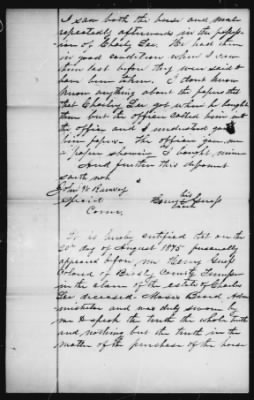 I saw both the horse and mule
repeatedly afterwards in the posses-
sion of Charly Lee. He had them
in good condition when I saw
them last before they were said to
have been taken. I don't know
know anything about the papers that
that Charley Lee got when he bought
them but the officer called him out
the office and I understood gave
him papers. The officer gave me
a paper showing I bought mine
And further this deponent
saith not
John W Ramsey
Special
Comr.
his
Henry Guess
mark
It is hereby certified that on the
20th day of August 1875 personally
appeared before me Henry Guess
Colored of County
in the claim of the estate of Charles
Lee deceased Moses Beard Adm
inistrator and was duly sworn by
me to speak the truth the whole truth
and nothing but the truth in the
matter of the purchase of the horse